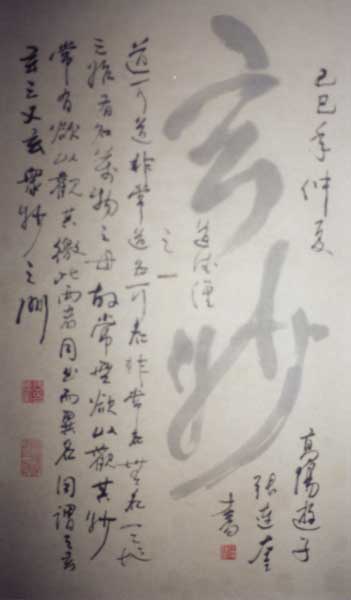 玄妙
己巳年仲夏
道德經
之一
道可道非常道名可名非常名無名天地
之始有名萬物之母故常無欲以觀其妙
常有欲以觀其徼此兩者同出而異名同謂之玄
玄之又玄衆妙之門
高陽遊子
張連奎
書